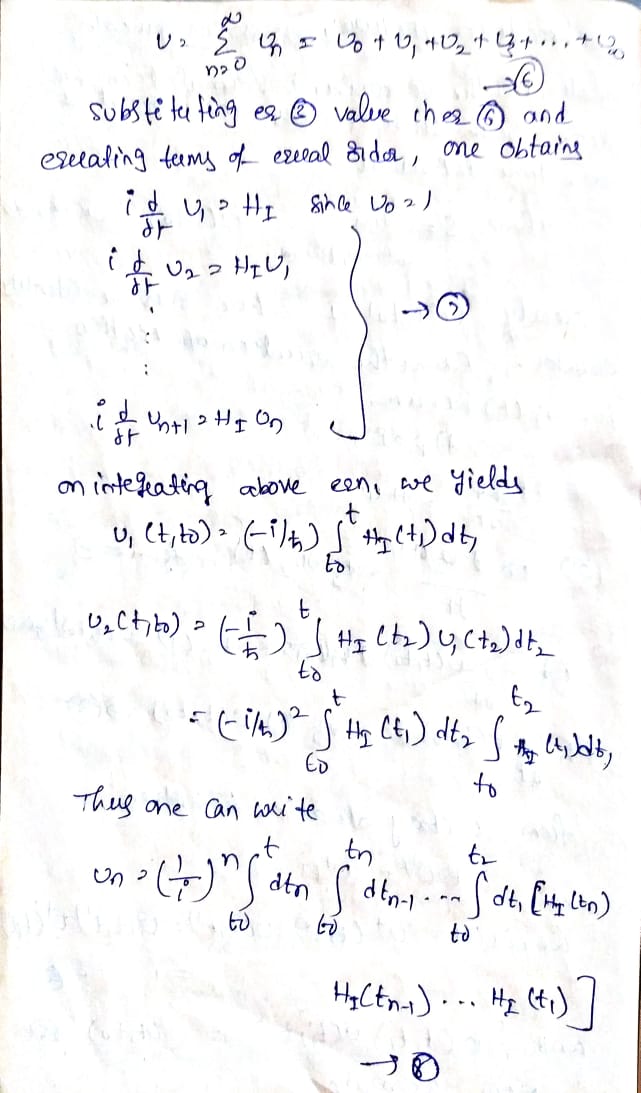 U = ∞Σn=0 Un = U0 + U1 + U2 + U3 + ... + U∞
→ ⑥
Substituting eq ② value then ⑥ and
equating terms of equal order, one obtains
i d/dt U1 = HI Since U0 = 1
i d/dt U2 = HI U1
→ ⑦
⋮
i d/dt Un+1 = HI Un
on integrating above eqn, we yields
U1 (t,t0) = (-i/ħ) ∫t0^t HI (t1) dt1
U2(t,t0) = (-i/ħ) ∫t0^t HI (t2) U1(t2) dt2
= (-i/ħ)² ∫t0^t HI (t1) dt2 ∫t0^t2 HI (t1) dt1
Thus one can write
Un = (1/i)^n ∫t0^t dtn ∫t0^tn dtn-1 ... ∫t0^t2 dt1 [HI (tn)
HI(tn-1) ... HI (t1)]
→ ⑧